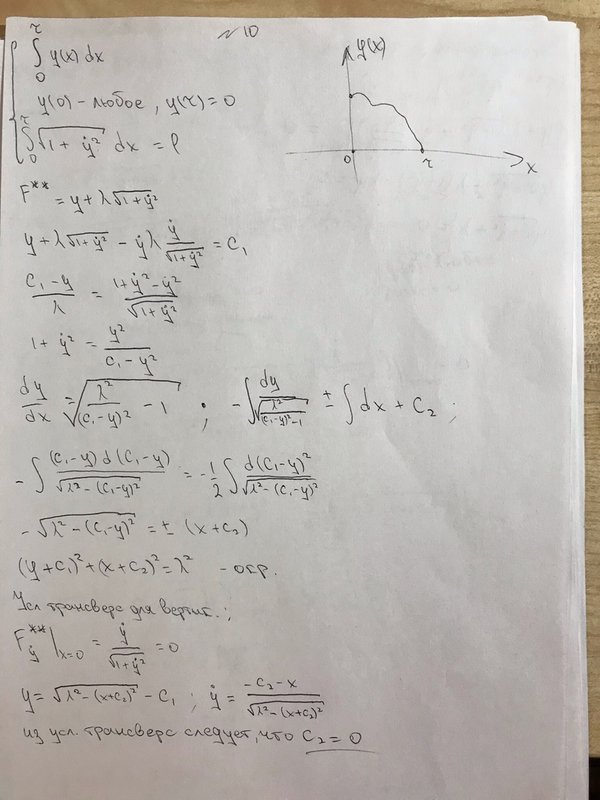 №10
∫₀^τ y(x) dx
y(0) - любое, y(τ) = 0
∫₀^τ √(1 + ẏ²) dx = ℓ
y(x)
0
τ
x
F** = y + λ√(1+ẏ²)
y + λ√(1+ẏ²) - ẏλ ẏ/√(1+ẏ²) = C₁
(C₁ - y)/λ = (1+ẏ²-ẏ²)/√(1+ẏ²)
1 + ẏ² = y²/(C₁ - y²)
dy/dx = √(λ²/(C₁-y)² - 1) ; -∫ dy/√(λ²/(C₁-y)² -1) = ± ∫dx + C₂ ;
-∫ (C₁-y) d(C₁-y)/√(λ²-(C₁-y)²) = -1/2 ∫ d(C₁-y)²/√(λ²-(C₁-y)²)
-√(λ²-(C₁-y)²) = ± (x+C₂)
(y+C₁)² + (x+C₂)² = λ² - окр.
Усл трансверс для вертик.;
F**ẏ |ₓ₌₀ = ẏ/√(1+ẏ²) = 0
y = √(λ²-(x+C₂)²) - C₁ ; ẏ = (-C₂-x)/√(λ²-(x+C₂)²)
из усл. трансверс следует, что C₂ = 0